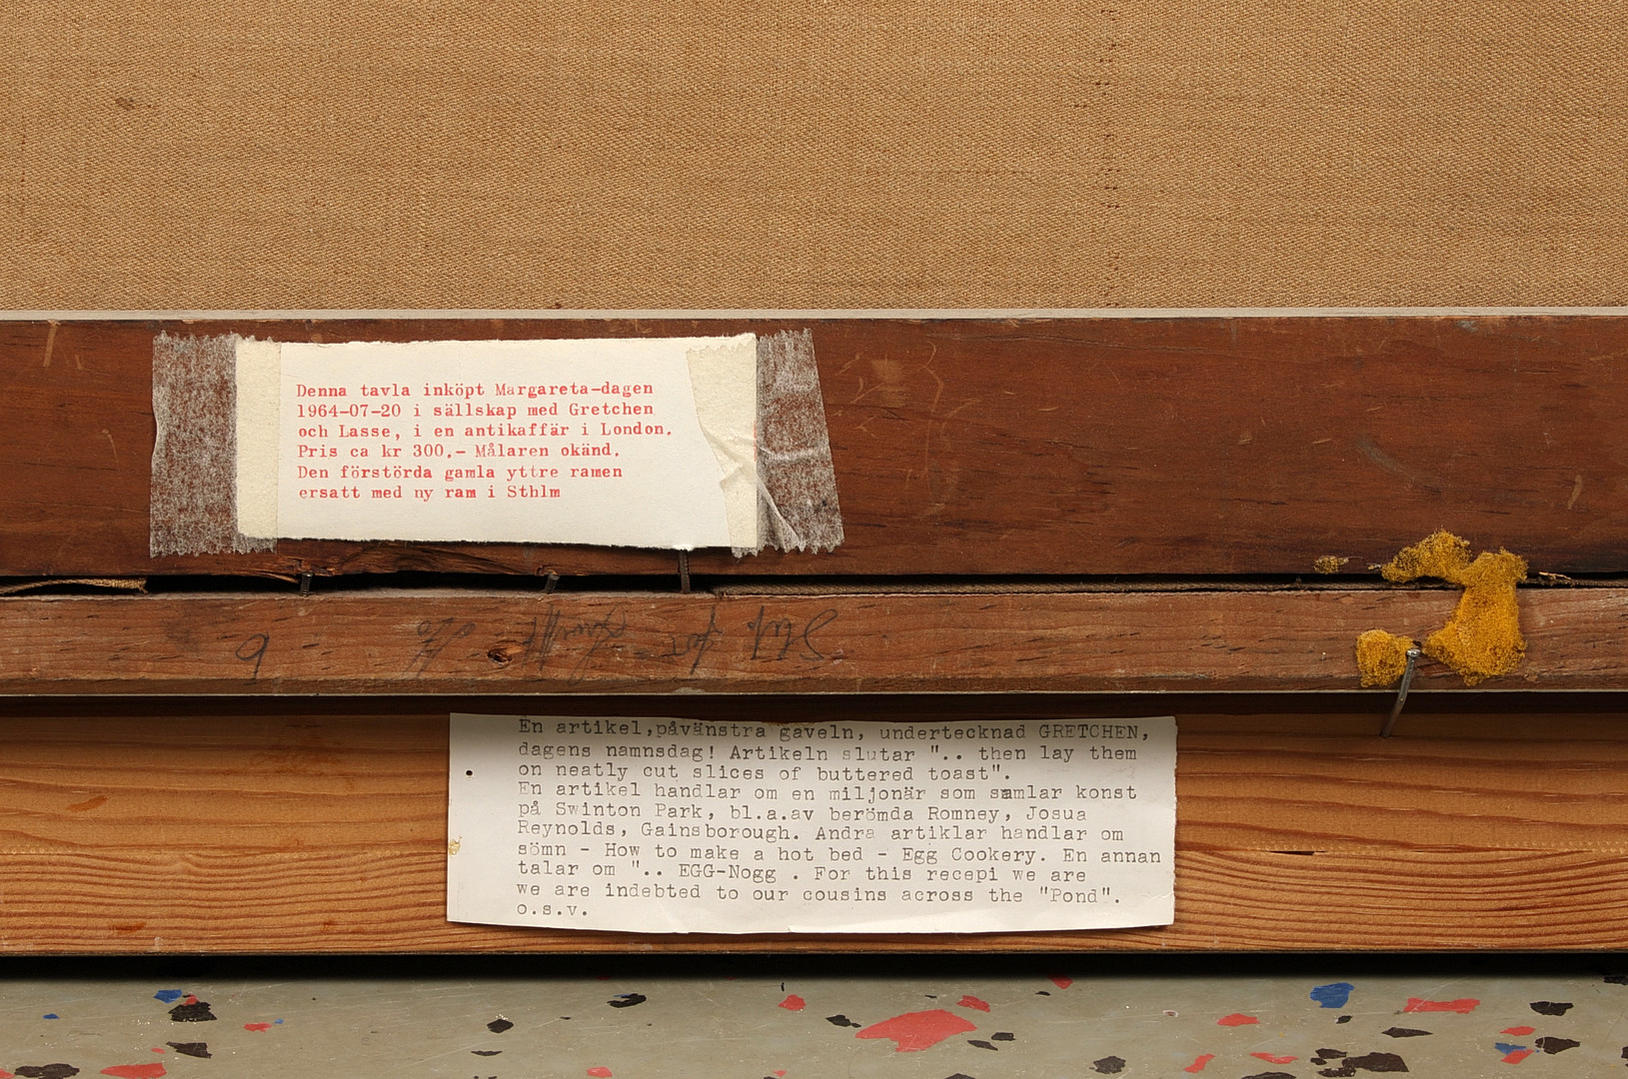 Denna tavla inköpt Margareta-dagen
1964-07-20 i sällskap med Gretchen
och Lasse, i en antikaffär i London.
Pris ca kr 300.- Målaren okänd.
Den förstörda gamla yttre ramen
ersatt med ny ram i Sthlm
En artikel,påvänstra gaveln, undertecknad GRETCHEN,
dagens namnsdag! Artikeln slutar ".. then lay them
on neatly cut slices of buttered toast".
En artikel handlar om en miljonär som samlar konst
på Swinton Park, bl.a.av berömda Romney, Josua
Reynolds, Gainsborough. Andra artiklar handlar om
sömn - How to make a hot bed - Egg Cookery. En annan
talar om ".. EGG-Nogg . For this recepi we are
we are indebted to our cousins across the "Pond".
o.s.v.